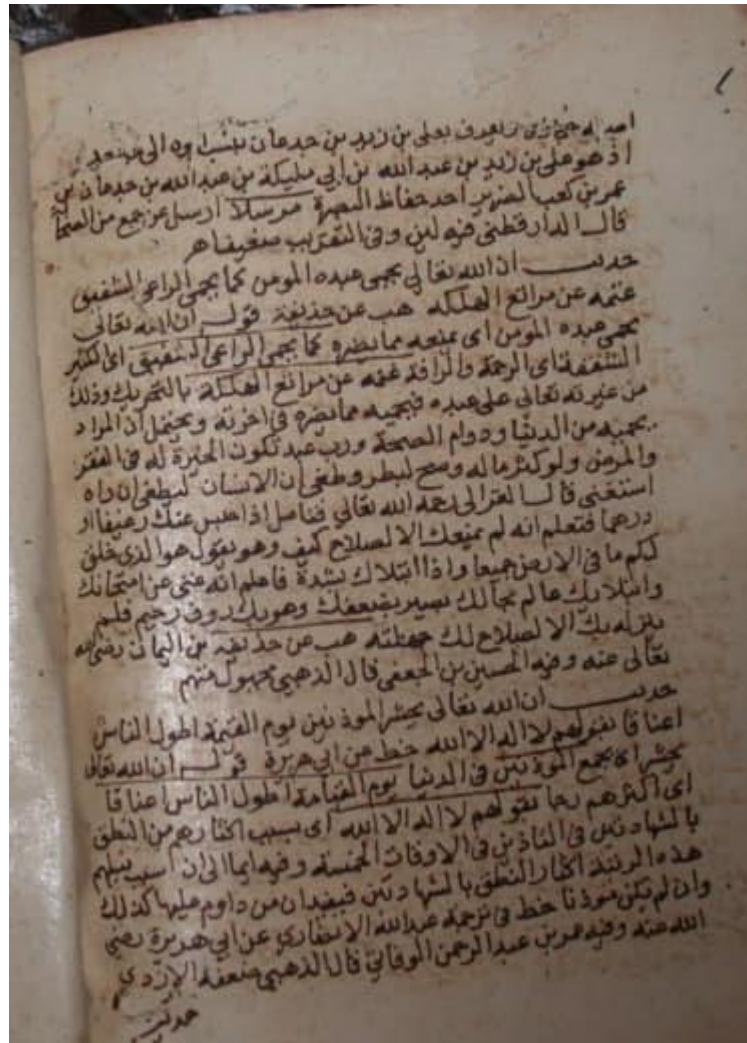 يعرف بعلي بن زيد بن جدعان ينسب ابوه الى جد جد
اذ هو علي بن زيد بن عبد الله بن ابي مليكة بن عبد الله بن جدعان بن
عمر بن كعب الضرير احد حفاظ البصرة مرسلا ارسل عن جمع من الصحابة
قال الدارقطني فيه لين وفي التقريب ضعيف اهر
حديث ان الله تعالى يحمى عبده المومن كما يحمى الراعى الشفيق
غنمه عن مراتع الهلكة هب عن حذيفة قوله ان الله تعالى
يحمى عبده المومن اى يمنعه مما يضره كما يحمى الراعى الشفيق اى الكثير
الشفقة اى الرحمة والرافة غنمه عن مراتع الهلكة بالتحريك وذلك
من غيرته تعالى على عبده فيحميه مما يضره في اخرته ويحتمل ان المراد
يحميه من الدنيا ودوام الصحة ورب عبد تكون الخيرة له في الفقر
والمرض ولو كثر ماله وصح لبطر وطغى ان الانسان ليطغى ان راه
استغنى قال الغزالى رحمه الله تعالى فتامل اذا حبس عنك رغيفا او
درهما فتعلم انه لم يمنعك الا لصلاح كيف وهو يقول هو الذى خلق
لكم ما في الارض جميعا واذا ابتلاك بشدة فاعلم انه غنى عن امتحانك
وابتلائك عالم بحالك بصير بضعفك وهو بك روف رحيم فلم
ينزله بك الا لصلاح لك جهلته هب عن حذيفة بن اليمان رضى الله
تعالى عنه وفيه الحسين بن الجعفى قال الذهبي مجهول متهم
حديث ان الله تعالى يحشر الموذنين يوم القيمة اطول الناس
اعناقا بقولهم لا اله الا الله خط عن ابي هريرة قوله ان الله تعالى
يحشر اى يجمع الموذنين في الدنيا يوم القيامة اطول الناس اعناقا
اى اكثرهم رجا بقولهم لا اله الا الله اى بسبب اكثارهم من النطق
بالشهادتين في التاذين في الاوقات الخمسة وفيه ايما الى ان سبب نيلهم
هذه الرتبة اكثار النطق بالشهادتين فيفيد ان من داوم عليها كذلك
وان لم يكن موذنا خط في ترجمة عبد الله الانصاري عن ابي هريرة رضى
الله عنه وفيه عمر بن عبد الرحمن الوقاصي قال الذهبي ضعفه الازدي
حديث